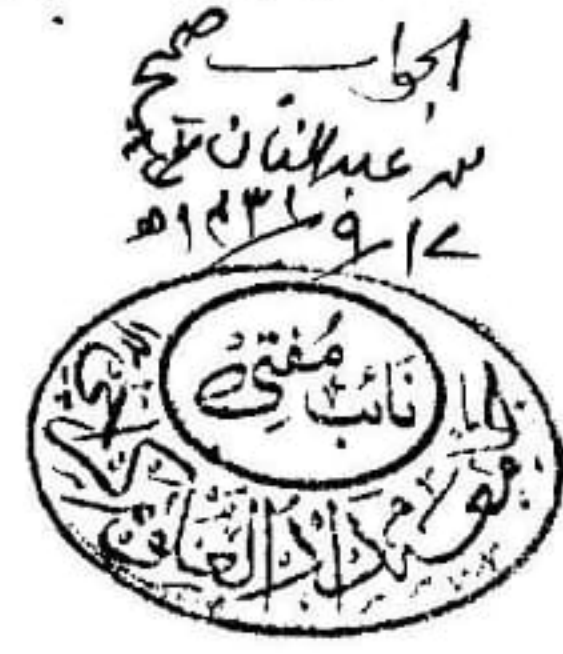 الجواب صحیح
عبدالمنان عفی عنہ
۱۷/۹/۱۴۳۱ھ
نائب مفتی
دارالعلوم کراچی